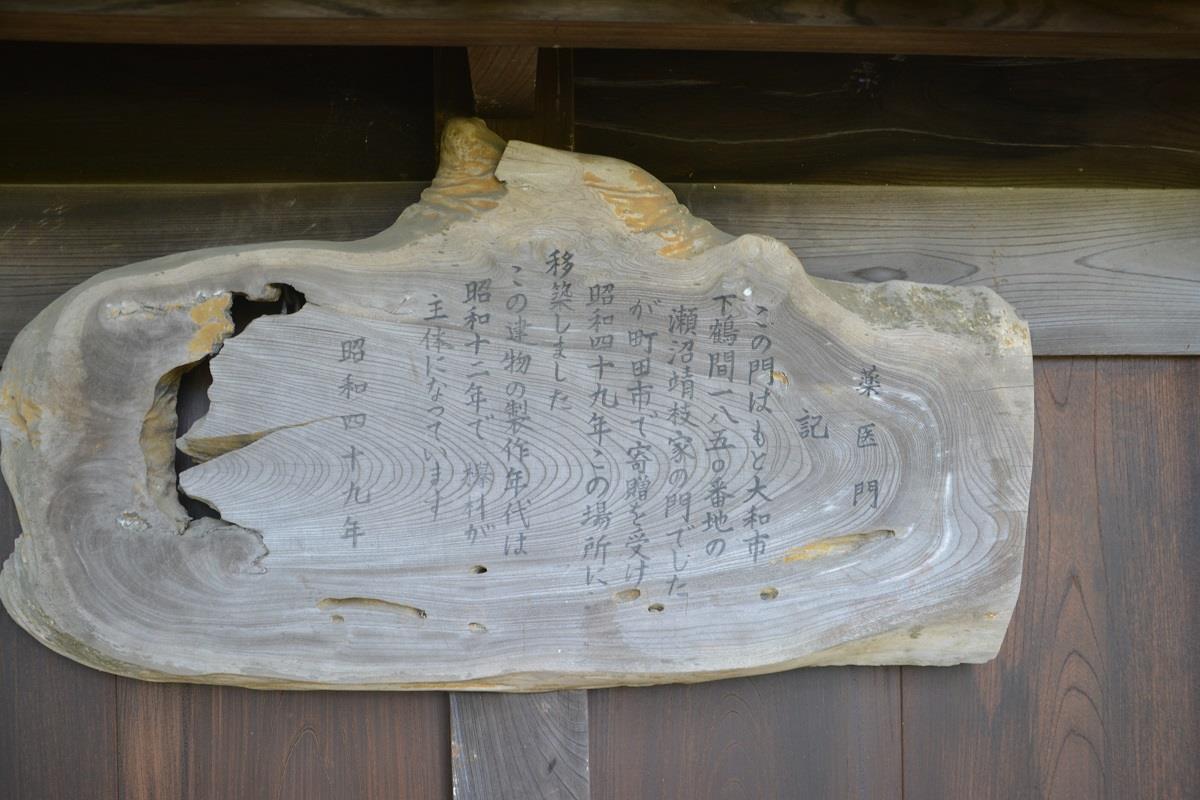 薬医門
記
この門はもと大和市
下鶴間一八五〇番地の
瀬沼靖枝家の門でした
が町田市で寄贈を受け
昭和四十九年この場所に
移築しました
この建物の製作年代は
昭和十二年で 欅材が
主体になっています
昭和四十九年